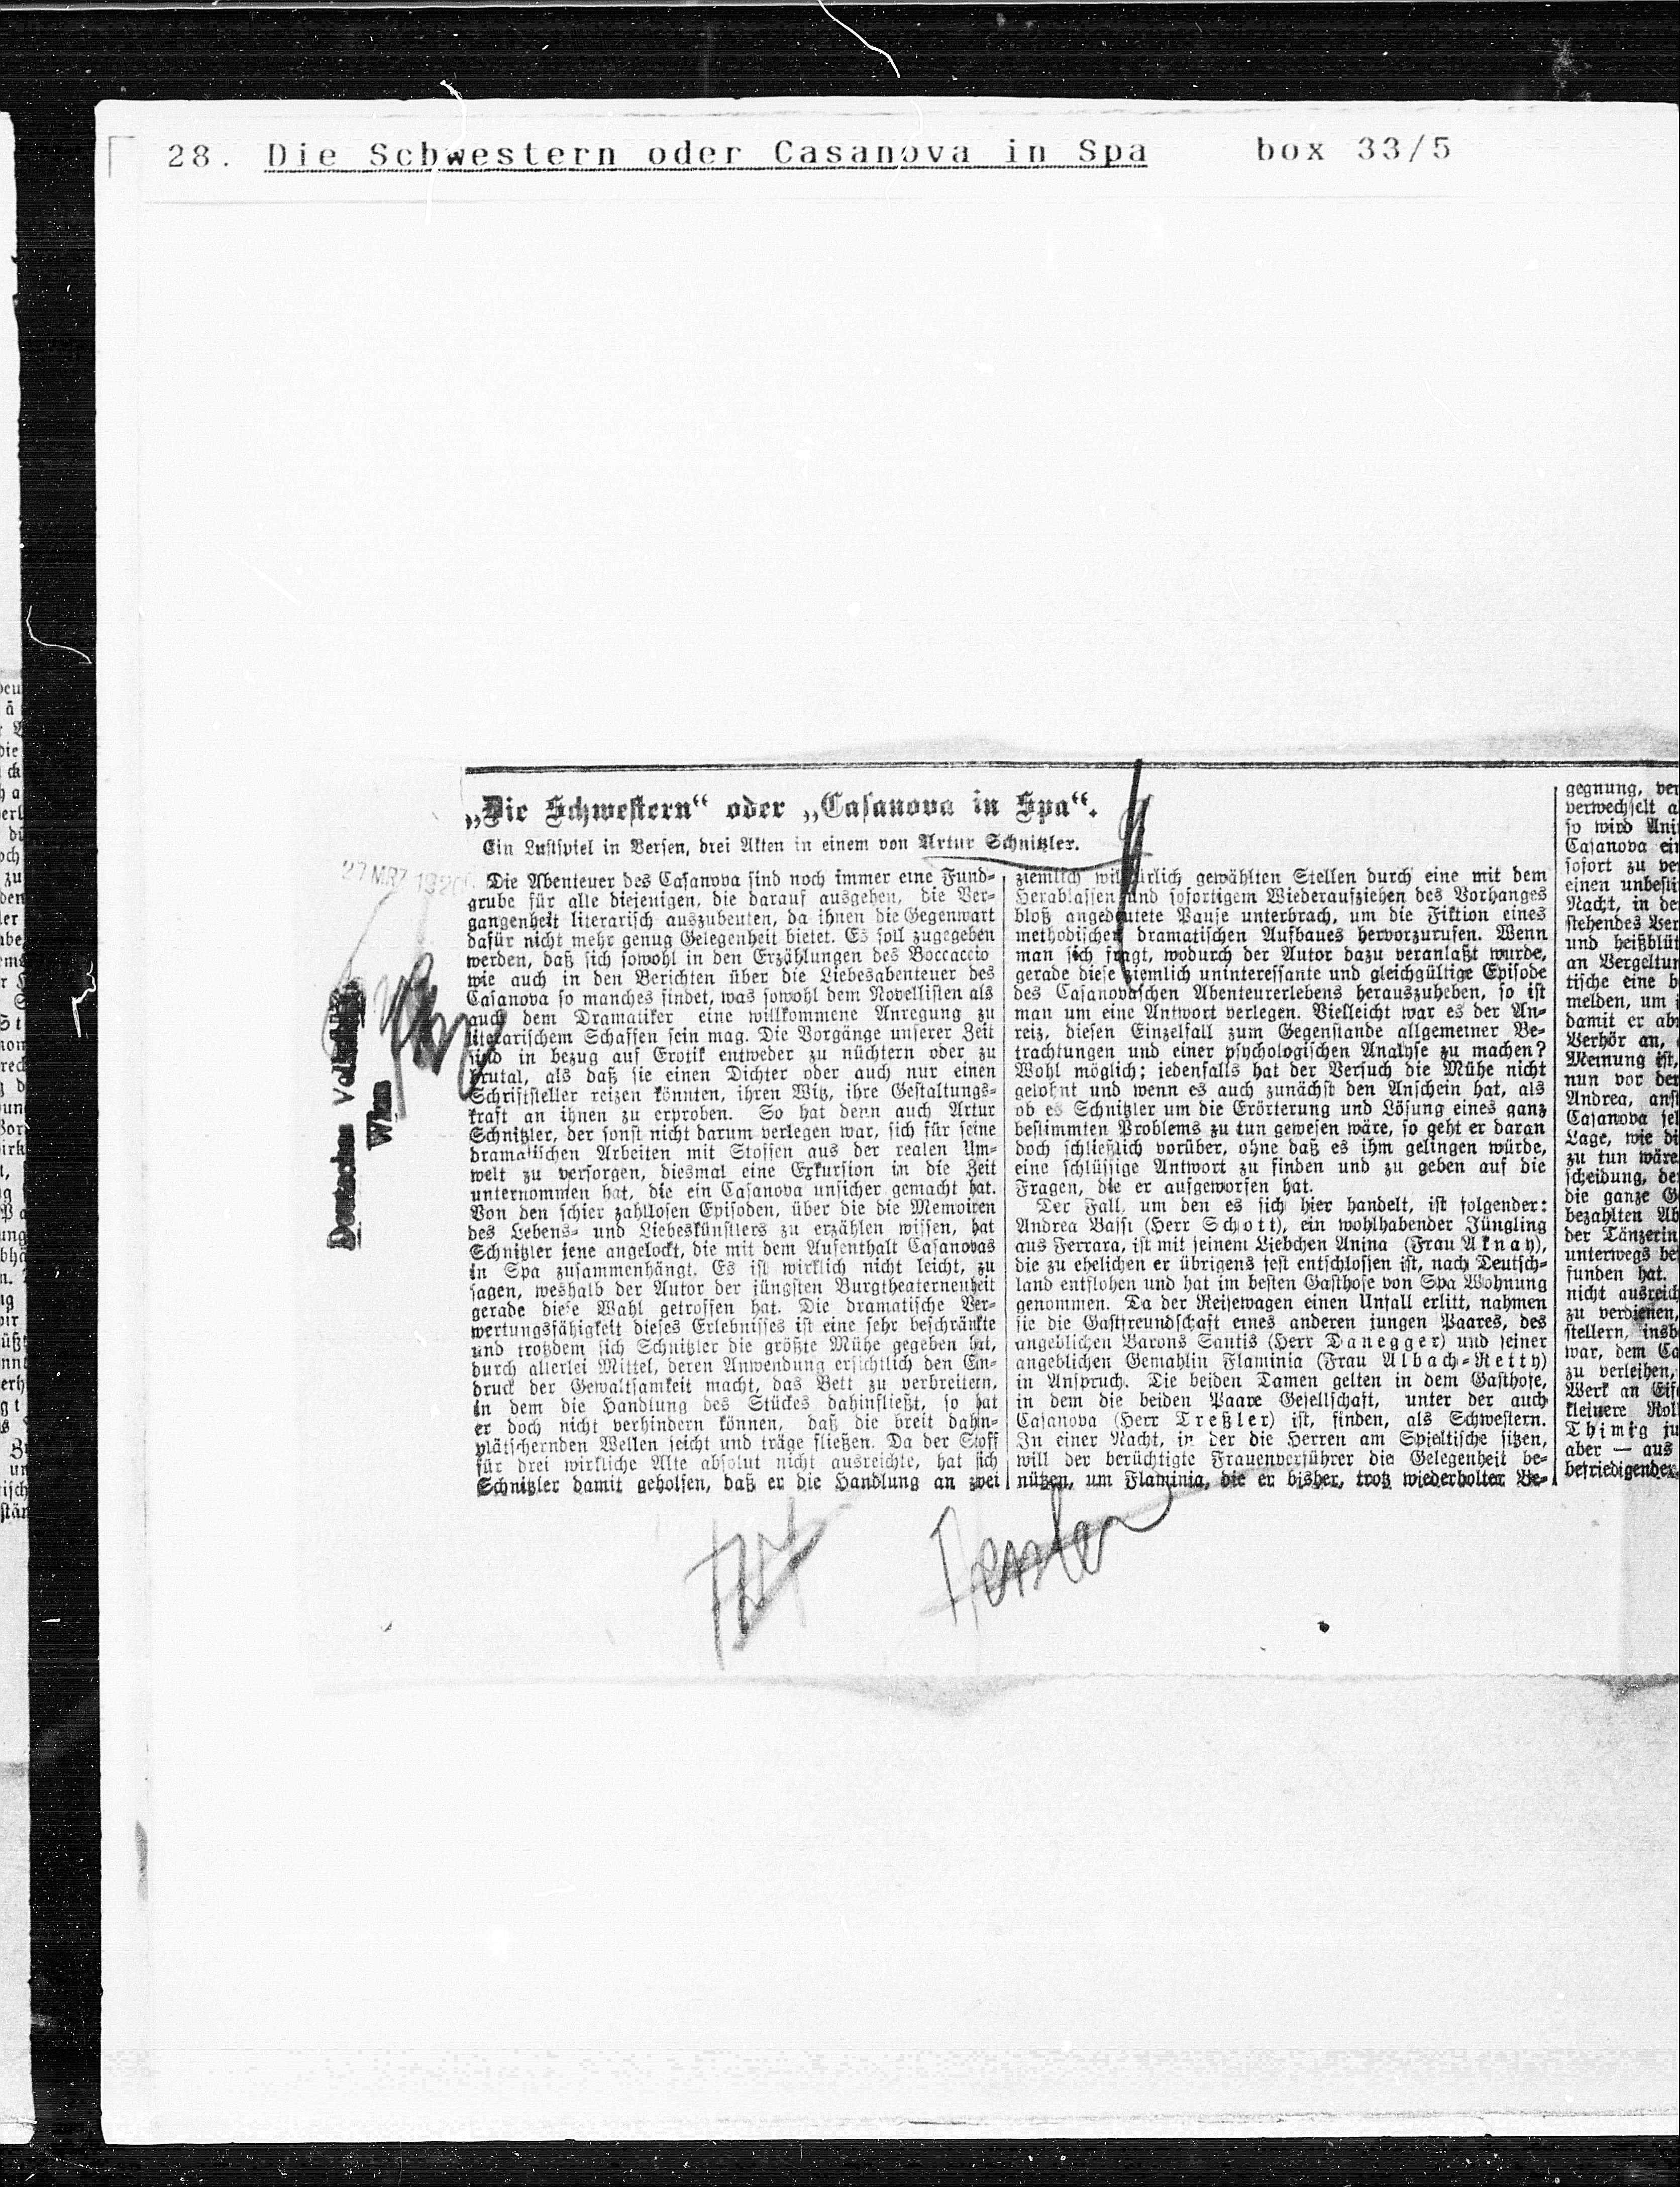 28. Die Schwestern oder Casanova in Spa box 33/5
„Die Schwestern“ oder „Casanova in Spa“.
Ein Lustspiel in Versen, drei Akten in einem von Artur Schnitzler.
27 MRZ 1920
Deutsches Volksblatt
Wien
Die Abenteuer des Casanova sind noch immer eine Fund-
grube für alle diejenigen, die darauf ausgehen, die Ver-
gangenheit literarisch auszubeuten, da ihnen die Gegenwart
dafür nicht mehr genug Gelegenheit bietet. Es soll zugegeben
werden, daß sich sowohl in den Erzählungen des Boccaccio
wie auch in den Berichten über die Liebesabenteuer des
Casanova so manches findet, was sowohl dem Novellisten als
auch dem Dramatiker eine willkommene Anregung zu
literarischem Schaffen sein mag. Die Vorgänge unserer Zeit
sind in bezug auf Erotik entweder zu nüchtern oder zu
brutal, als daß sie einen Dichter oder auch nur einen
Schriftsteller reizen könnten, ihren Witz, ihre Gestaltungs-
kraft an ihnen zu erproben. So hat denn auch Artur
Schnitzler, der sonst nicht darum verlegen war, sich für seine
dramatischen Arbeiten mit Stoffen aus der realen Um-
welt zu versorgen, diesmal eine Exkursion in die Zeit
unternommen hat, die ein Casanova unsicher gemacht hat.
Von den schier zahllosen Episoden, über die die Memoiren
des Lebens- und Liebeskünstlers zu erzählen wissen, hat
Schnitzler jene angelockt, die mit dem Aufenthalt Casanovas
in Spa zusammenhängt. Es ist wirklich nicht leicht, zu
sagen, weshalb der Autor der jüngsten Burgtheaterneuheit
gerade diese Wahl getroffen hat. Die dramatische Ver-
wertungsfähigkeit dieses Erlebnisses ist eine sehr beschränkte
und trotzdem sich Schnitzler die größte Mühe gegeben hat,
durch allerlei Mittel, deren Anwendung ersichtlich den Ein-
druck der Gewaltsamkeit macht, das Bett zu verbreitern,
in dem die Handlung des Stückes dahinfließt, so hat
er doch nicht verhindern können, daß die breit dahin-
plätschernden Wellen seicht und träge fließen. Da der Stoff
für drei wirkliche Akte absolut nicht ausreichte, hat sich
Schnitzler damit geholfen, daß er die Handlung an zwei
ziemlich willkürlich gewählten Stellen durch eine mit dem
Herablassen und sofortigem Wiederaufziehen des Vorhanges
bloß angedeutete Pause unterbrach, um die Fiktion eines
methodischen dramatischen Aufbaues hervorzurufen. Wenn
man sich fragt, wodurch der Autor dazu veranlaßt wurde,
gerade diese ziemlich uninteressante und gleichgültige Episode
des Casanovaschen Abenteurerlebens herauszuheben, so ist
man um eine Antwort verlegen. Vielleicht war es der An-
reiz, diesen Einzelfall zum Gegenstande allgemeiner Be-
trachtungen und einer psychologischen Analyse zu machen?
Wohl möglich; jedenfalls hat der Versuch die Mühe nicht
gelohnt und wenn es auch zunächst den Anschein hat, als
ob es Schnitzler um die Erörterung und Lösung eines ganz
bestimmten Problems zu tun gewesen wäre, so geht er daran
doch schließlich vorüber, ohne daß es ihm gelingen würde,
eine schlüssige Antwort zu finden und zu geben auf die
Fragen, die er aufgeworfen hat.
Der Fall, um den es sich hier handelt, ist folgender:
Andrea Bassi (Herr Schott), ein wohlhabender Jüngling
aus Ferrara, ist mit seinem Liebchen Anina (Frau Aknay),
die zu ehelichen er übrigens fest entschlossen ist, nach Deutsch-
land entflohen und hat im besten Gasthofe von Spa Wohnung
genommen. Da der Reisewagen einen Unfall erlitt, nahmen
sie die Gastfreundschaft eines anderen jungen Paares, des
angeblichen Barons Santis (Herr Danegger) und seiner
angeblichen Gemahlin Flaminia (Frau Albach-Retty)
in Anspruch. Die beiden Damen gelten in dem Gasthofe,
in dem die beiden Paare Gesellschaft, unter der auch
Casanova (Herr Treßler) ist, finden, als Schwestern.
In einer Nacht, in der die Herren am Spieltische sitzen,
will der berüchtigte Frauenverführer die Gelegenheit be-
nützen, um Flaminia, die er bisher, trotz wiederholter Be-
gegnung, ver
verwechselt a
so wird Ani
Casanova ein
sofort zu ve
einen unbesti
Nacht, in de
stehendes Ver
und heißblüt
an Vergeltun
tische eine b
melden, um
damit er ab
Verhör an,
Meinung ist,
nun vor der
Andrea, anst
Casanova sel
Lage, wie di
zu tun wäre
scheidung, de
die ganze G
bezahlten Ab
der Tänzerin
unterwegs be
funden hat.
nicht ausreich
zu verdienen,
stellern, insb
war, dem Ca
zu verleihen,
Werk an Eif
kleinere Rol
Thimig ju
aber — aus
befriedigender